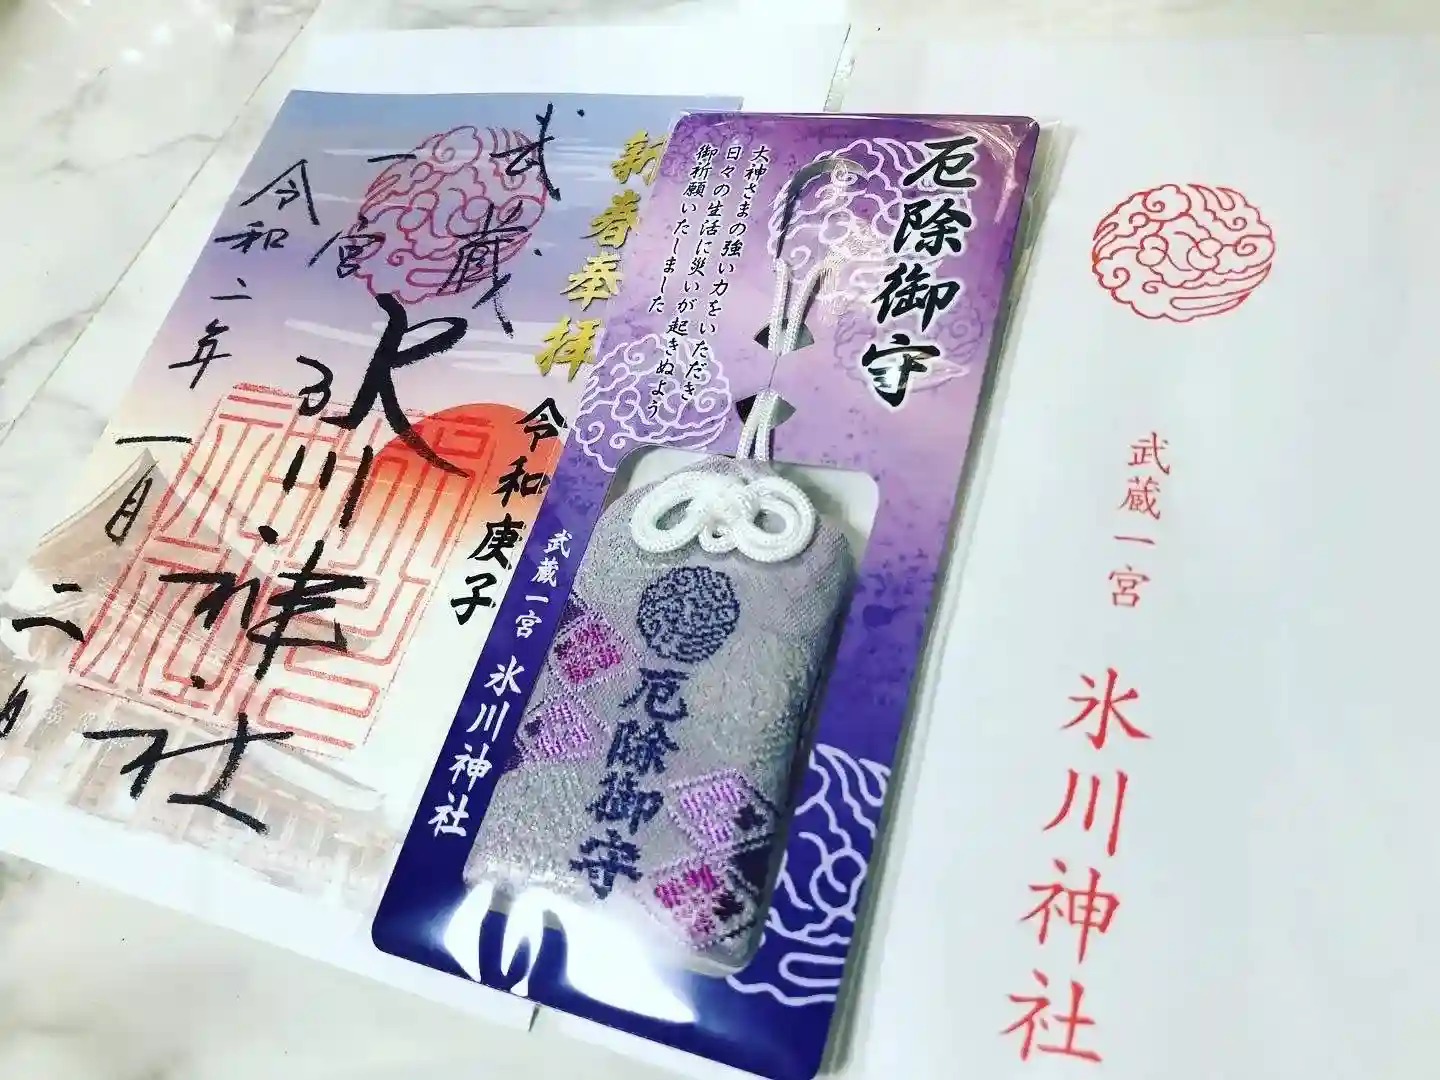 厄除御守
大神さまの強い力をいただき
日々の生活に災いが起きぬよう
御祈願いたしました
厄除御守
武蔵一宮
氷川神社
新春奉拝
令和庚子
武蔵
一宮
氷川神社
令和二年
一月二
月
武蔵一宮
氷川神社